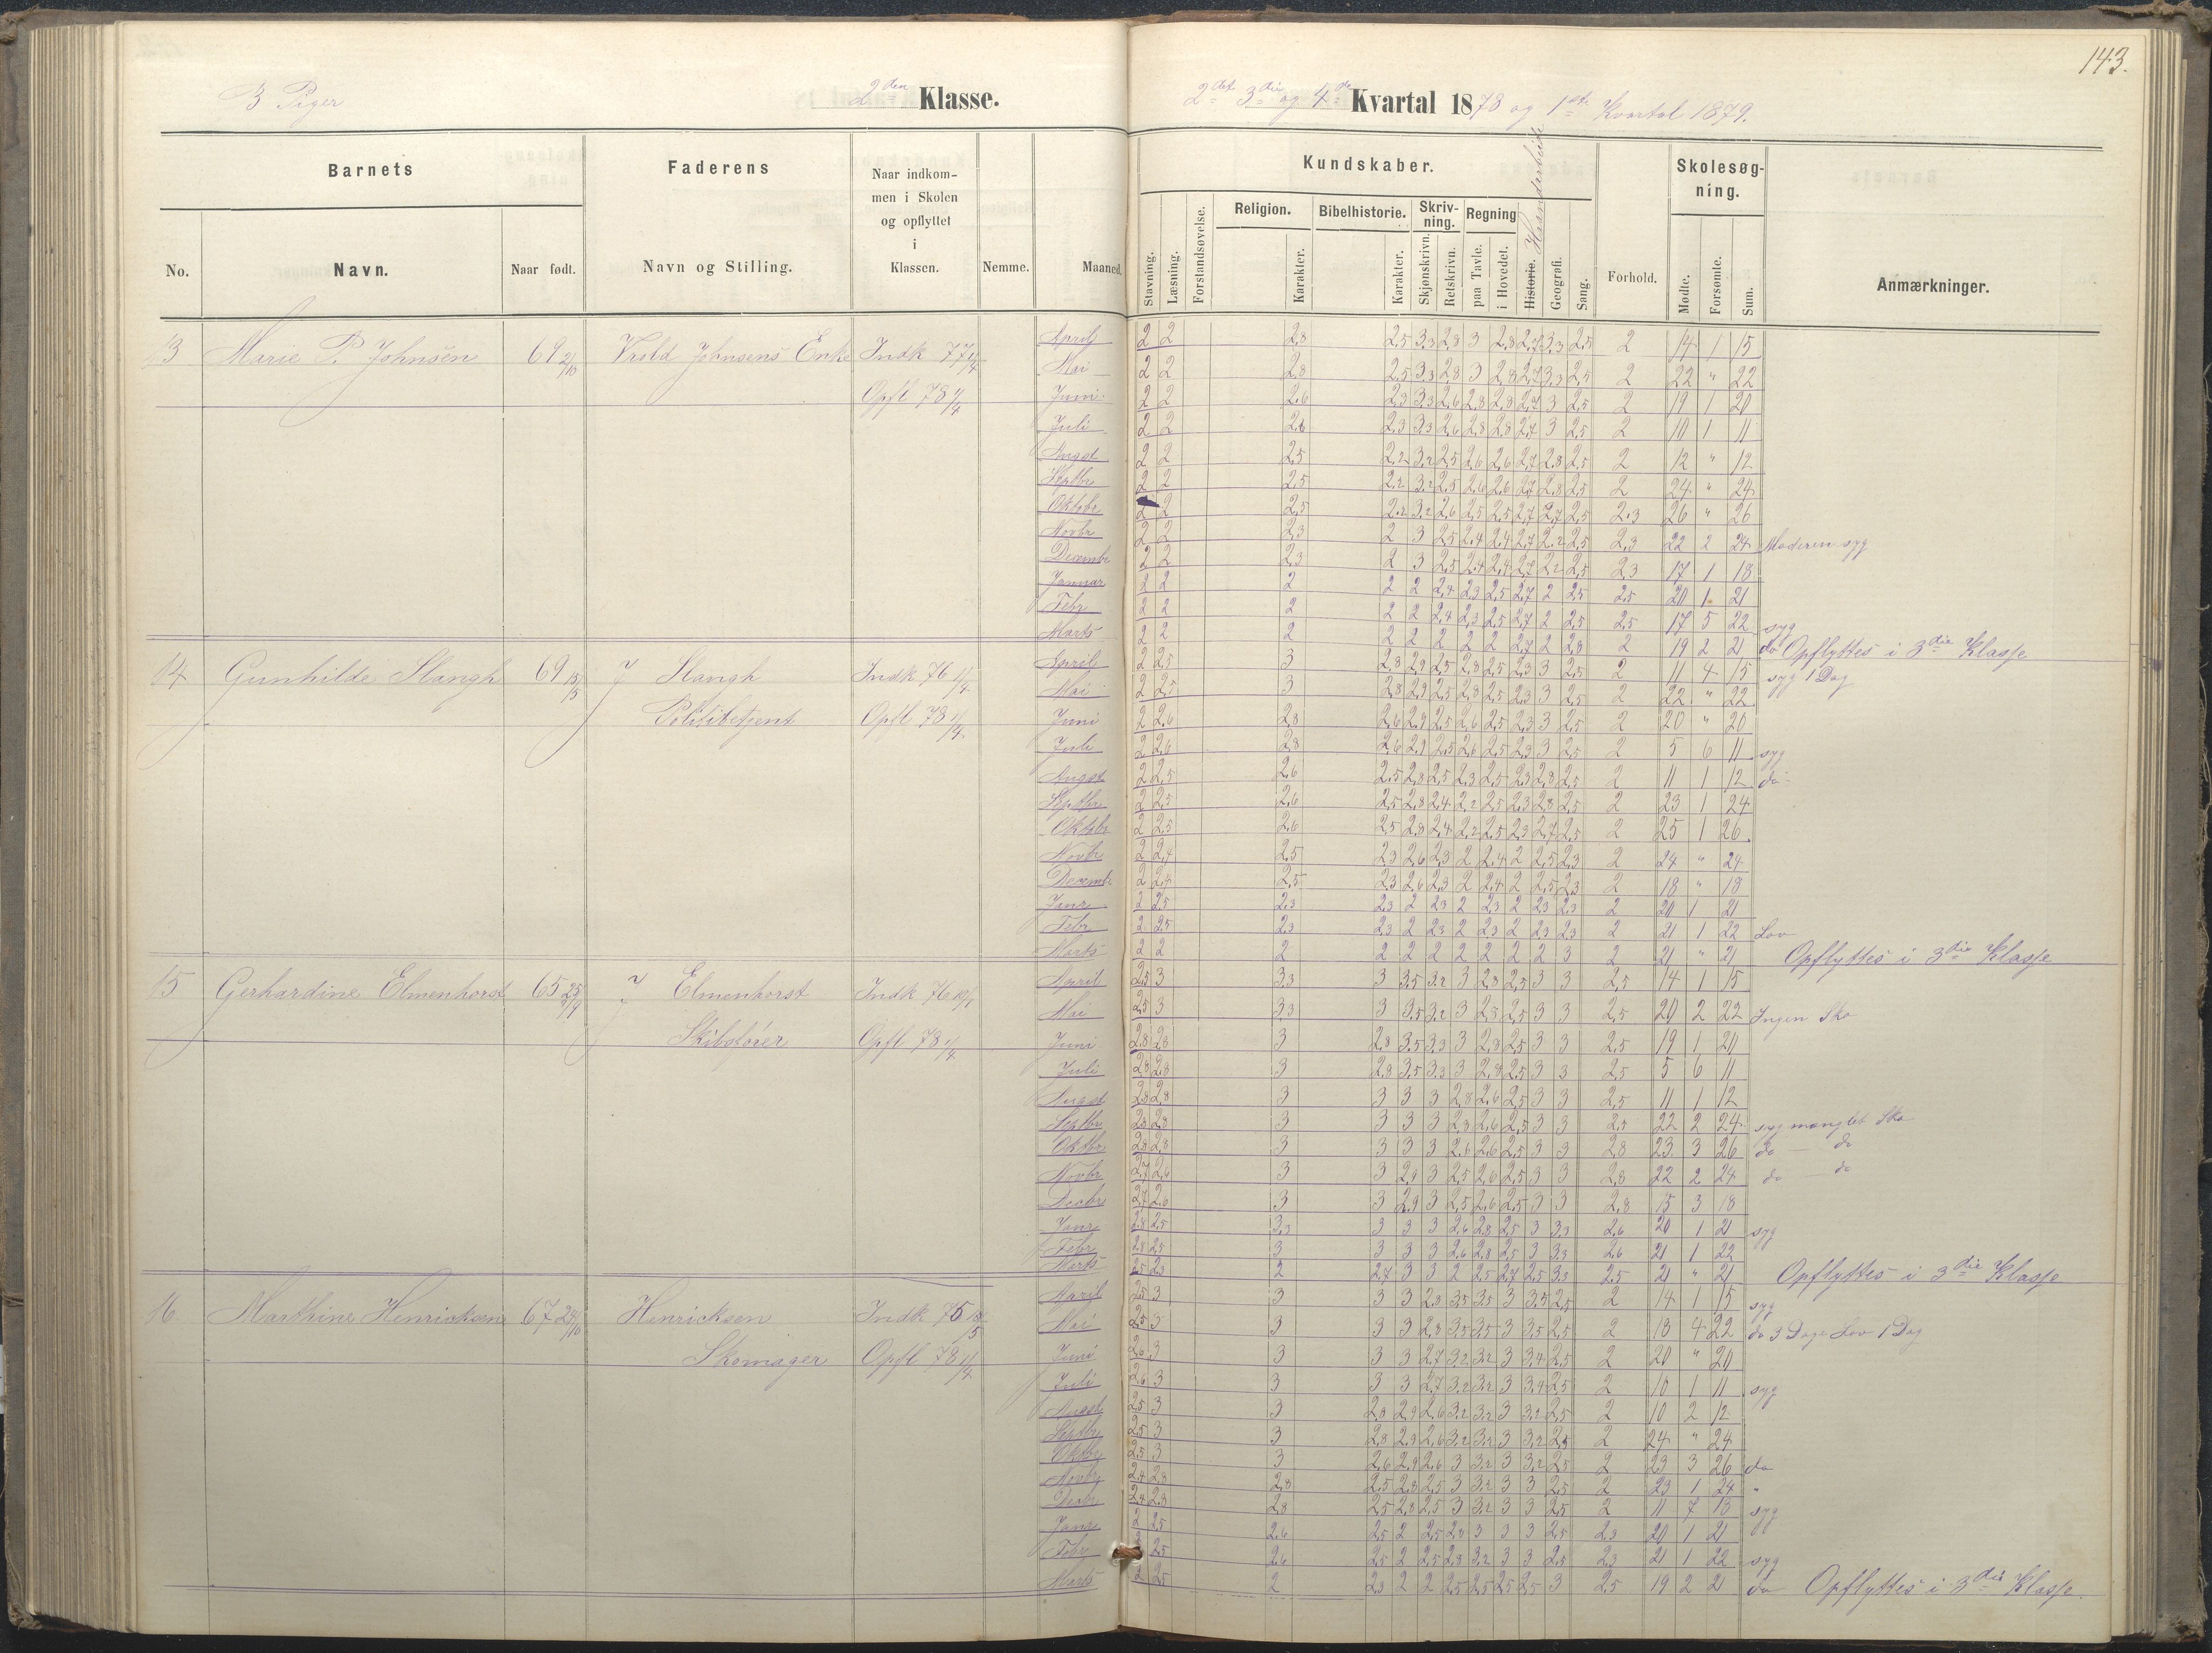 143.
B Piger
2den Klasse.
2det 3die og 4de Kvartal 1878 og 1ste Kvartal 1879.
Barnets
Faderens
Naar indkommen i Skolen og opflyttet i Klassen.
Nemme.
Maaned.
Kundskaber.
Forhold.
Skolesøgning.
Anmærkninger.
No.
Navn.
Naar født.
Navn og Stilling.
Stavning.
Læsning.
Forstandsøvelse.
Religion.
Karakter.
Bibelhistorie.
Karakter.
Skrivning.
Skjønskrivn.
Retskrivn.
Regning
paa Tavle.
i Hovedet.
Historie. Haandarbeide
Geografi.
Sang.
Mødte.
Forsømte.
Sum.
13 Marie P. Johnsen 69 2/10 Johnsens Enke Indk 77
Opfl 78 1/4
April 2 2 2,8 2,5 3,3 2,8 3 2,8 2,7 3,3 2,5 2 14 1 15
Mai 2 2 2,8 2,5 3,3 2,8 3 2,8 2,7 3,3 2,5 2 22 " 22
Juni 2 2 2,6 2,3 3,3 2,6 2,8 2,8 2,7 3 2,5 2 19 1 20
Juli 2 2 2,6 2,3 3,3 2,6 2,8 2,8 2,7 3 2,5 2 10 1 11
Augst 2 2 2,5 2,2 3,2 2,5 2,6 2,6 2,7 2,8 2,5 2 12 " 12
Septbr 2 2 2,5 2,2 3,2 2,5 2,6 2,6 2,7 2,8 2,5 2 24 " 24
Oktobr 2 2 2,5 2,2 3,2 2,6 2,5 2,5 2,7 2,7 2,5 2,3 26 " 26
Novbr 2 2 2,3 2 3 2,5 2,4 2,4 2,7 2,2 2,5 2,3 22 2 24 Moderen syg
Decembr 2 2 2,3 2 3 2,5 2,4 2,4 2,7 2,2 2,5 2,3 17 1 18
Januar 2 2 2 2 2 2,4 2,3 2,5 2,7 2 2,5 2,5 20 1 21
Febr 2 2 2 2 2 2,4 2,3 2,5 2,7 2 2,5 2,5 17 5 22 syg
Marts 2 2 2 2 2 2 2 2 2,7 2 2,8 2 19 2 21 do Opflyttes i 3die Klasse
14 Gunhilde Stangh 69 15/5 J Stangh Indk 76 11/4
Politibetjent Opfl 78 1/4
April 2 2,5 3 2,8 2,9 2,5 2,8 2,5 2,3 3 2,5 2 11 4 15 syg 1 Dag
Mai 2 2,5 3 2,8 2,9 2,5 2,8 2,5 2,3 3 2,5 2 22 " 22
Juni 2 2,6 2,8 2,6 2,9 2,5 2,6 2,5 2,3 3 2,5 2 20 " 20
Juli 2 2,6 2,8 2,6 2,9 2,5 2,6 2,5 2,3 3 2,5 2 5 6 11 syg
Augst 2 2,5 2,6 2,5 2,8 2,5 2,3 2,5 2,3 2,8 2,5 2 11 1 12 do
Septbr 2 2,5 2,6 2,5 2,8 2,4 2,2 2,5 2,3 2,8 2,5 2 23 1 24
Oktobr 2 2,5 2,6 2,5 2,8 2,4 2,2 2,5 2,3 2,7 2,5 2 25 1 26
Novbr 2 2,4 2,5 2,3 2,6 2,3 2 2,4 2 2,5 2,3 2 24 " 24
Decembr 2 2,4 2,5 2,3 2,6 2,3 2 2,4 2 2,5 2,3 2 18 " 18
Janr 2 2,5 2,3 2,3 2 2,3 2 2,3 2 2,3 2,3 2 20 1 21
Febr 2 2,5 2,3 2,3 2 2,3 2 2,3 2 2,3 2,3 2 21 1 22 Lov
Marts 2 2 2 2 2 2 2 2 2 2 3 2 21 " 21 Opflyttes i 3die Klasse
15 Gerhardine Elmenhorst 65 25/9 J Elmenhorst Indk 76 10/1
Skibsfører Opfl 78 1/4
April 2,5 3 3,3 3 3,5 3,2 3 2,8 2,5 3 3 2,5 14 1 15
Mai 2,5 3 3,3 3 3,5 3,2 3 2,5 2,5 3 3 2,5 20 2 22 Ingen Sko
Juni 2,8 2,8 3 2,8 3,5 3,3 3 2,8 2,5 3 3 2,5 19 1 20
Juli 2,8 2,8 3 2,8 3,5 3,3 3 2,8 2,5 3 3 2,5 5 6 11
Augst 2,8 2,8 3 3 3 3 2,8 2,6 2,5 3 3 2,5 11 1 12
Septbr 2,8 2,8 3 3 3 3 2,8 2,6 2,5 3 3 2,5 22 2 24 syg manglet Sko
Oktbr 2,8 2,8 3 3 3 3 2,6 2,6 2,5 3 3 2,8 23 3 26 do — do
Novbr 2,7 2,6 3 3 2,9 3 2,5 2,6 2,5 3 3 2,8 22 2 24 do — do
Decbr 2,7 2,6 3 3 2,9 3 2,5 2,6 2,5 3 3 2,8 15 3 18
Janr 2,8 2,5 3,3 3 3 3 2,6 2,8 2,5 3 3,3 2,6 20 1 21 syg
Febr 2,8 2,5 3 3 3 3 2,6 2,8 2,5 3 3,3 2,6 21 1 22
Marts 2,5 2,3 2 2,7 3 3 2 2,5 2,7 2,5 3,3 2,5 21 " 21 Opflyttes i 3die Klasse
16 Marthine Henricksen 67 24/10 Henricksen Indk 75
Skomager Opfl 78 1/4
April 2,5 3 3 3 3 2,8 3,5 3,5 3 3,5 2,5 2 14 1 15 syg
Mai 2,5 3 3 3 3 2,8 3,5 3,5 3 3,5 2,5 2 18 4 22 do 3 Dage Lov 1 Dag
Juni 2,6 3 3 3 3 2,7 3,2 3,2 3 3,4 2,5 2 20 " 20
Juli 2,6 3 3 3 3 2,7 3,2 3,2 3 3,4 2,5 2 10 1 11 syg
Augst 2,5 3 3 2,8 2,9 2,6 3,2 3,2 3 3,2 2,5 2 10 2 12
Septbr 2,5 3 3 2,8 2,9 2,6 3,2 3,2 3 3,2 2,5 2 24 " 24
Oktbr 2,5 3 3 2,6 2,9 2,6 3 3,2 3 3,2 2,5 2 23 3 26 do
Novbr 2,4 2,8 2,8 2,5 2,8 2,5 3 3,2 3 3 2,5 2 23 1 24 "
Decbr 2,4 2,8 2,8 2,5 2,8 2,5 3 3,2 3 3 2,5 2 11 7 18 syg
Janr 2 2,5 2,6 2,5 2 2,5 2,8 3 3 3 2,5 2,3 20 1 21
Febr 2,5 2,6 2,5 2 2,5 2,8 3,2 3 3 2,5 2,3 21 1 22 syg
Marts 2 2,5 2 2,3 2 2 2,5 2,5 2,5 2,5 3 2,5 19 2 21 do Opflyttes i 3die Klasse.